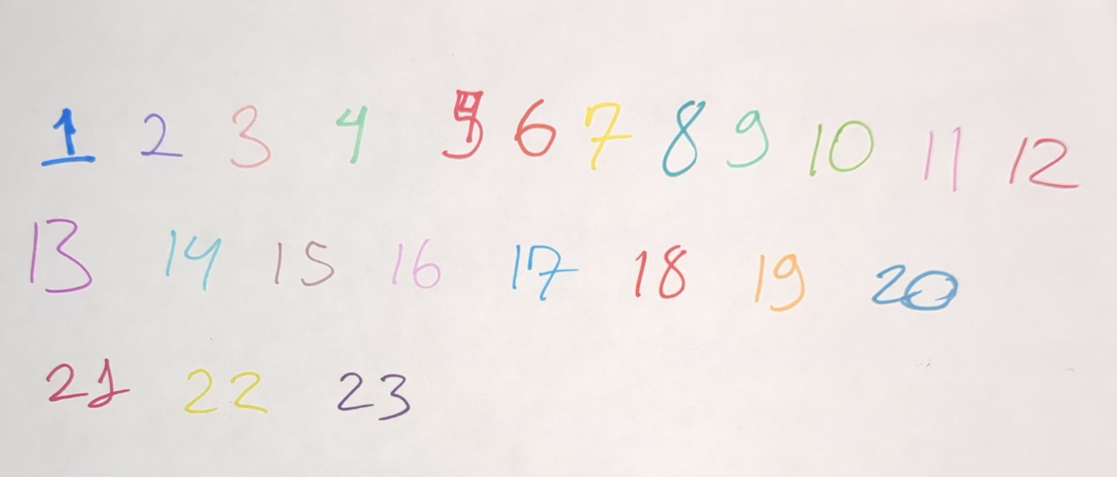 1 2 3 4 5 6 7 8 9 10 11 12
13 14 15 16 17 18 19 20
21 22 23